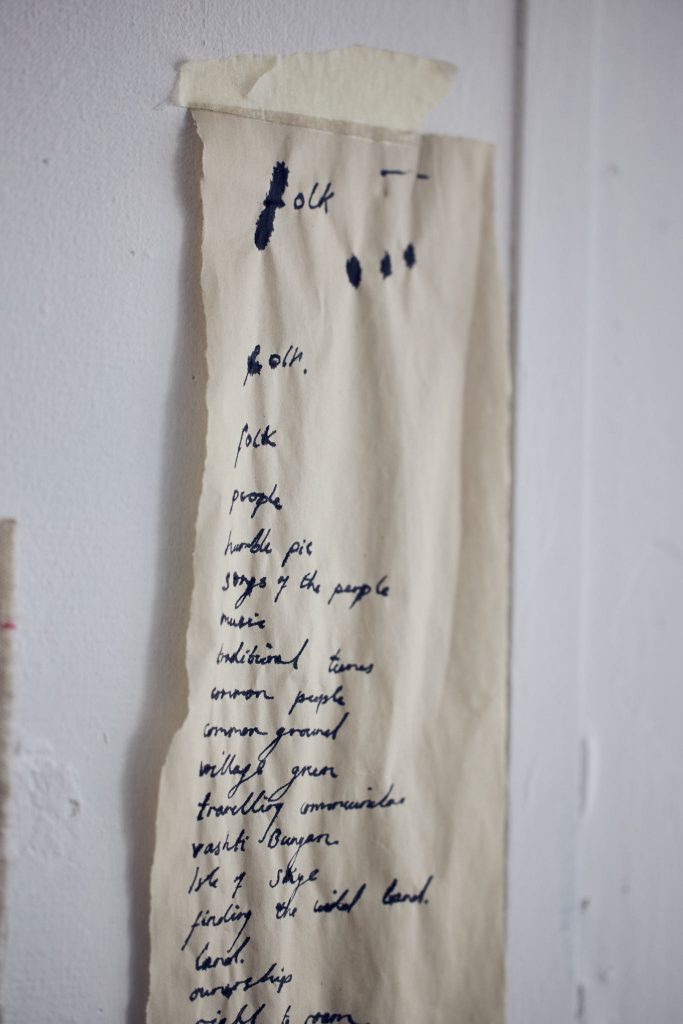 folk
folk.
folk
people
humble pie
songs of the people
music
traditional tunes
common people
common ground
village green
travelling communities
vashti Bunyan
Isle of Skye
finding the wild land.
land.
ownership
right to roam